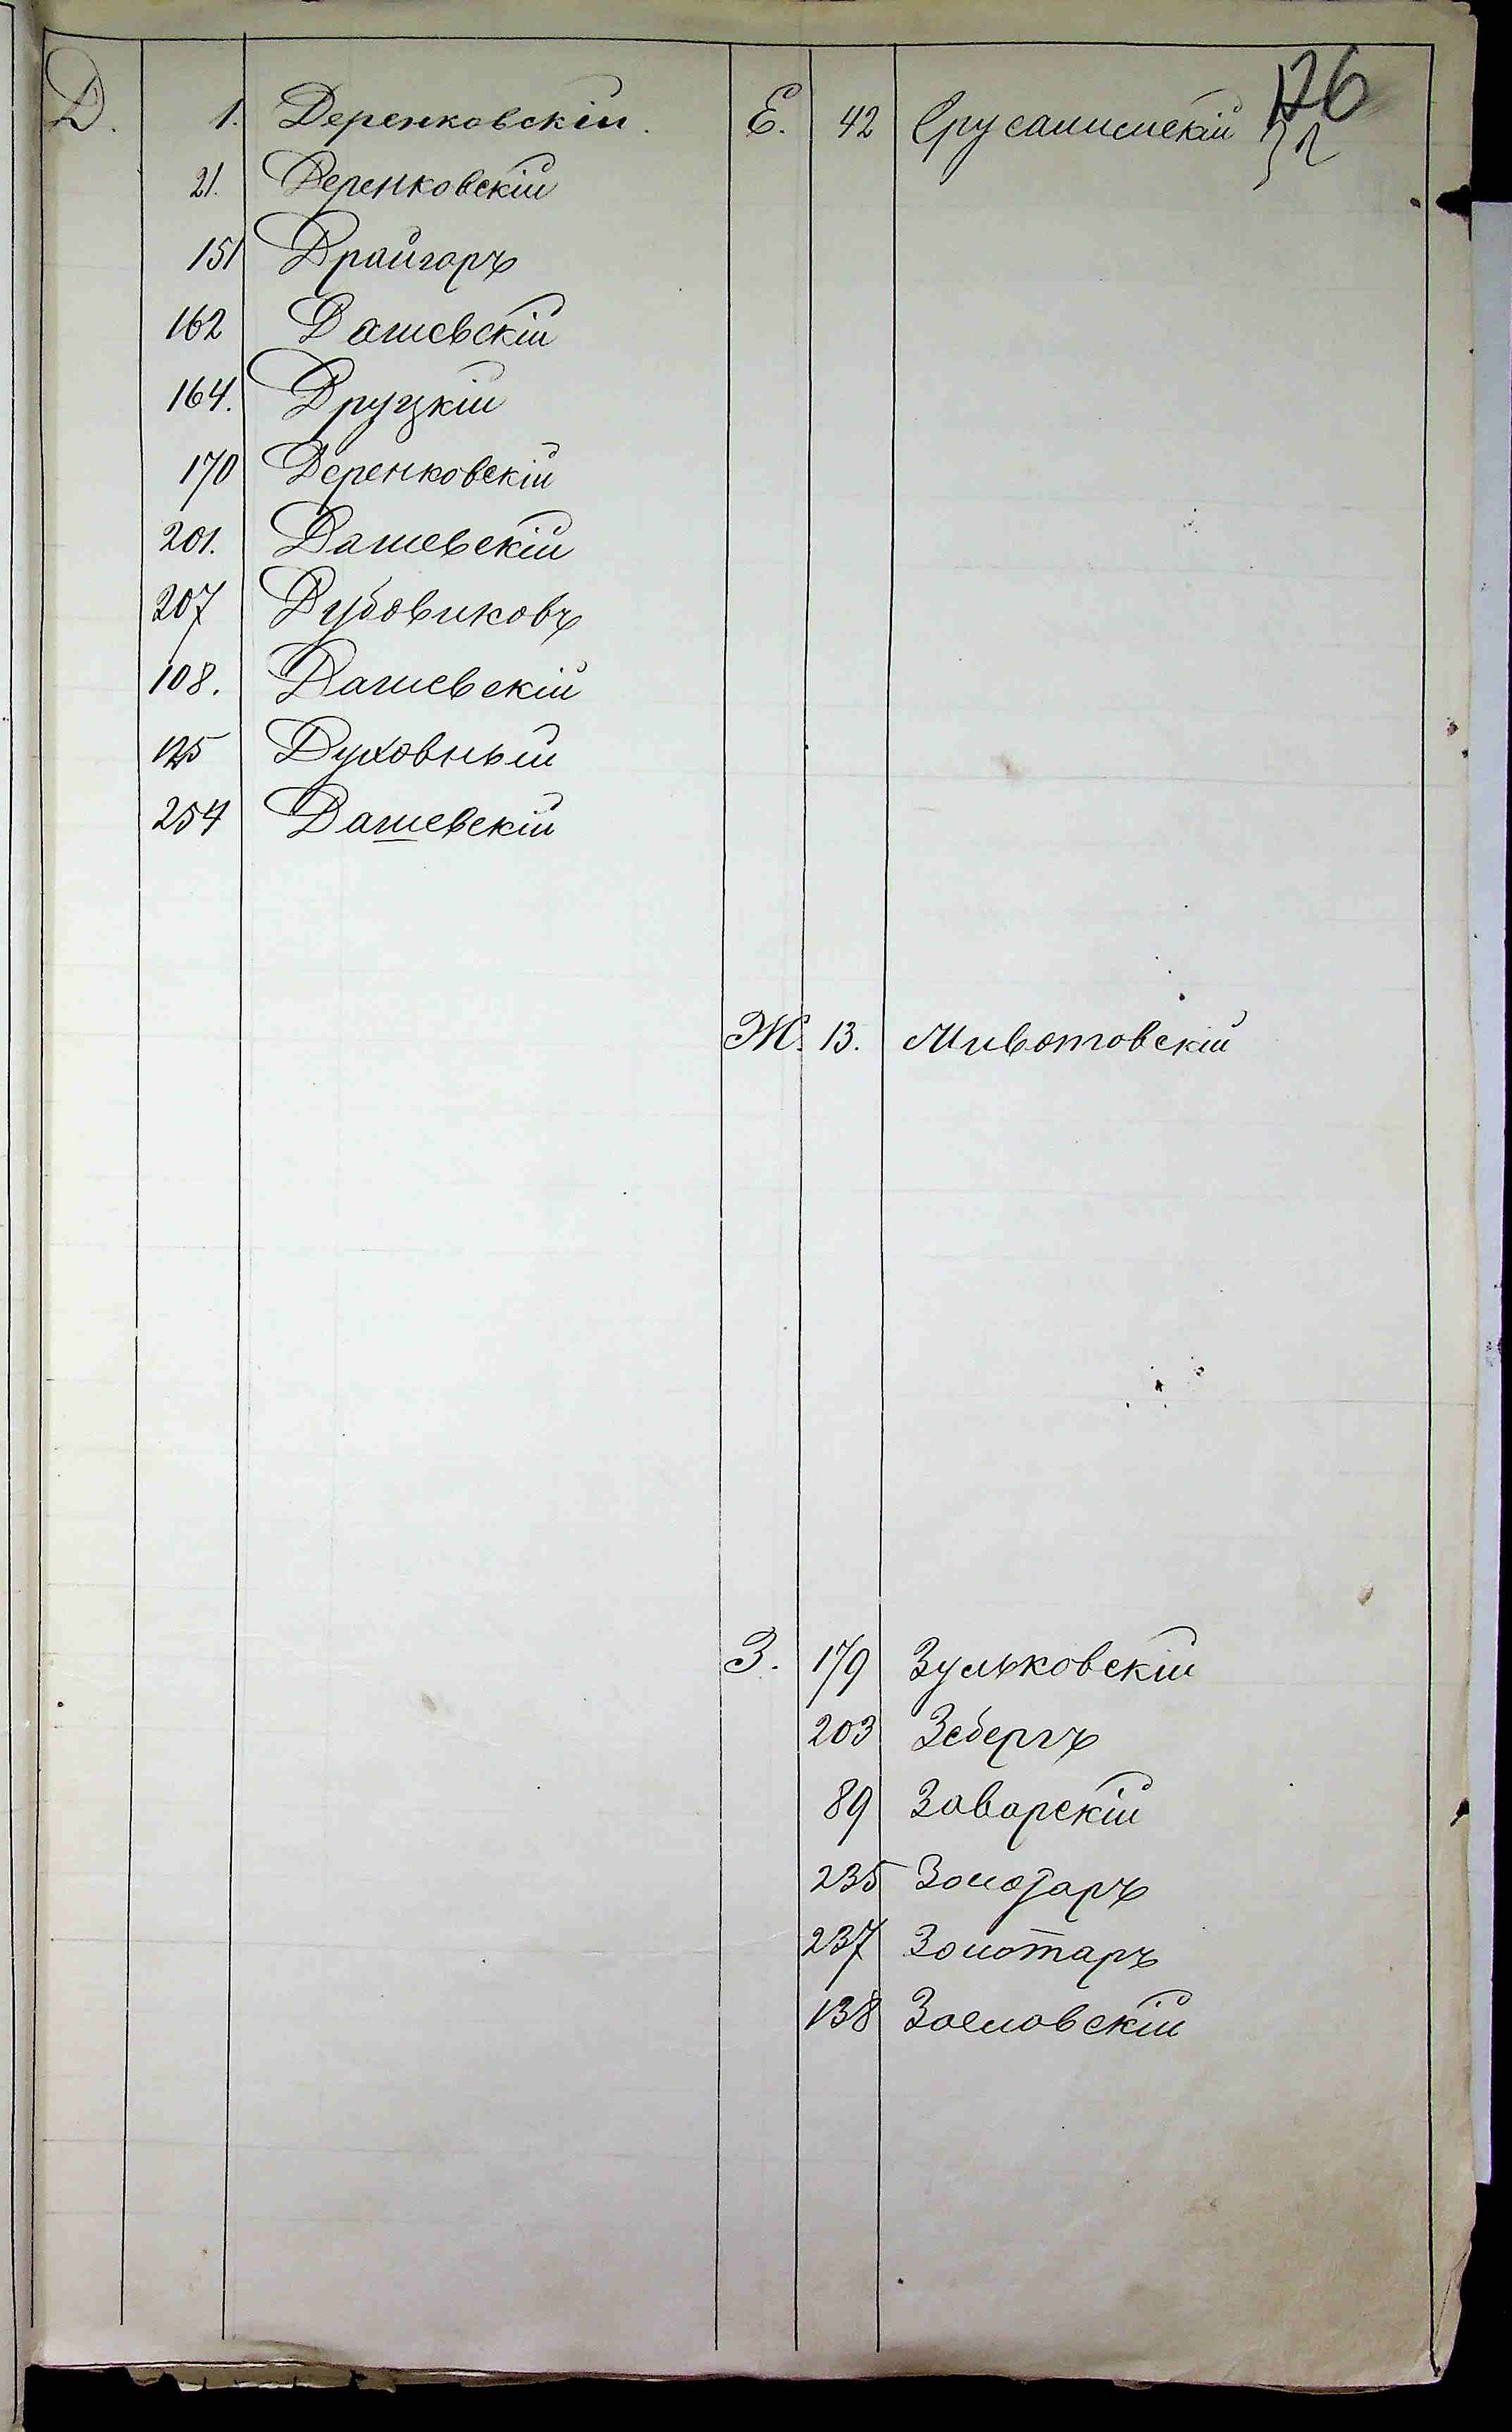 126
Д. 1. Деренковскій.
21. Деренковскій
151 Драйгоръ
162 Дашевскій
164. Друцкій
170 Деренковскій
201. Дашевскій
207 Дубовиковъ
108. Дашевскій
125 Духовный
254 Дашевскій
Е. 42 Ерусалимскій
Ж. 13. Животовскій
З. 179 Зульковскій
203 Зебергъ
89 Заварскій
235 Золотаръ
237 Золотаръ
138 Заславскій